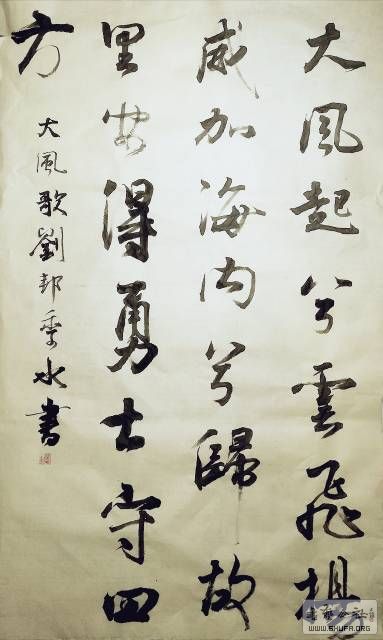 大風起兮雲飛揚
威加海內兮歸故
里安得勇士守四
方
大風歌劉邦季水書
WWW.SHUFA.ORG